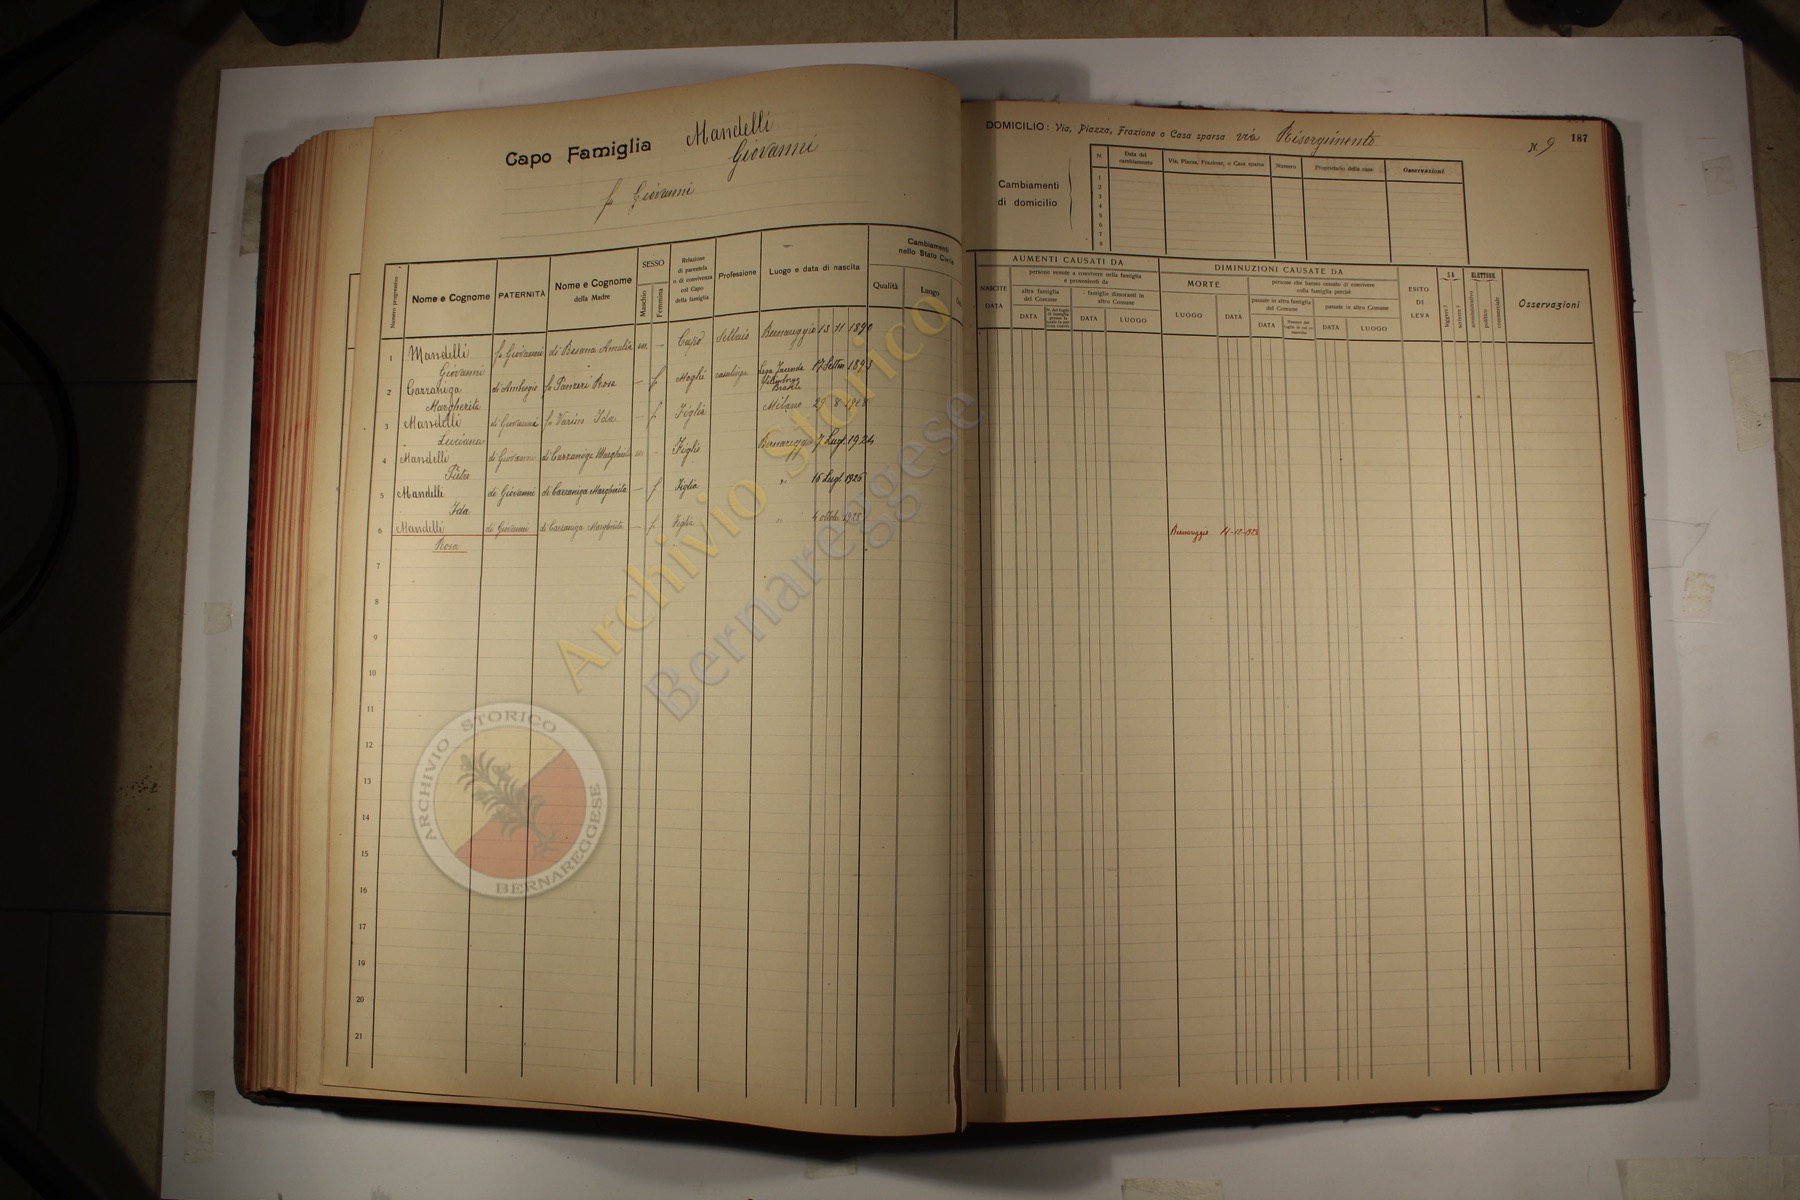 Capo Famiglia Mandelli
Giovanni
fu Giovanni
DOMICILIO: Via, Piazza, Frazione o Casa sparsa via Risorgimento
N. 9
187
Cambiamenti
di domicilio
N.
Data del
cambiamento
Via, Piazza, Frazione, o Casa sparsa
Numero
Proprietario della casa
Osservazioni
1
2
3
4
5
6
7
8
Numero progressivo
Nome e Cognome
PATERNITÀ
Nome e Cognome
della Madre
SESSO
Maschio
Femmina
Relazione
di parentela
o di convivenza
col Capo
della famiglia
Professione
Luogo e data di nascita
Cambiamenti
nello Stato Civile
Qualità
Luogo
AUMENTI CAUSATI DA
NASCITE
DATA
persone venute a convivere nella famiglia
e provenienti da
altra famiglia
del Comune
DATA
famiglie dimoranti in
altro Comune
DATA
LUOGO
DIMINUZIONI CAUSATE DA
MORTE
LUOGO
DATA
persone che hanno cessato di convivere
colla famiglia perchè
passate in altra famiglia
del Comune
DATA
passate in altro Comune
DATA
LUOGO
ESITO
DI
LEVA
SA
leggere?
scrivere?
ELETTORE
amministrativo
politico
commerciale
Osservazioni
1 Mandelli fu Giovanni di Besana Amalia m. — Capo Sellaio Bernareggio 13 11 1890
Giovanni
2 Carzaniga di Ambrogio fu Panzeri Rosa — f Moglie casalinga 17 Settem 1893
Margherita
3 Mandelli di Giovanni fu Varisn Ida — f Figlia Milano 29 8 1918
Luciana
4 Mandelli di Giovanni di Carzaniga Margherita m — Figlio Bernareggio 7 Lugl. 1924
Pietro
5 Mandelli di Giovanni di Carzaniga Margherita — f Figlia " 16 Lugl. 1926
Ida
6 Mandelli di Giovanni di Carzaniga Margherita — f Figlia " 4 ottob. 1928 Bernareggio 11-12-1928
Rosa
7
8
9
10
11
12
13
14
15
16
17
18
19
20
21
Archivio Storico
Bernareggese
ARCHIVIO STORICO
BERNAREGGESE